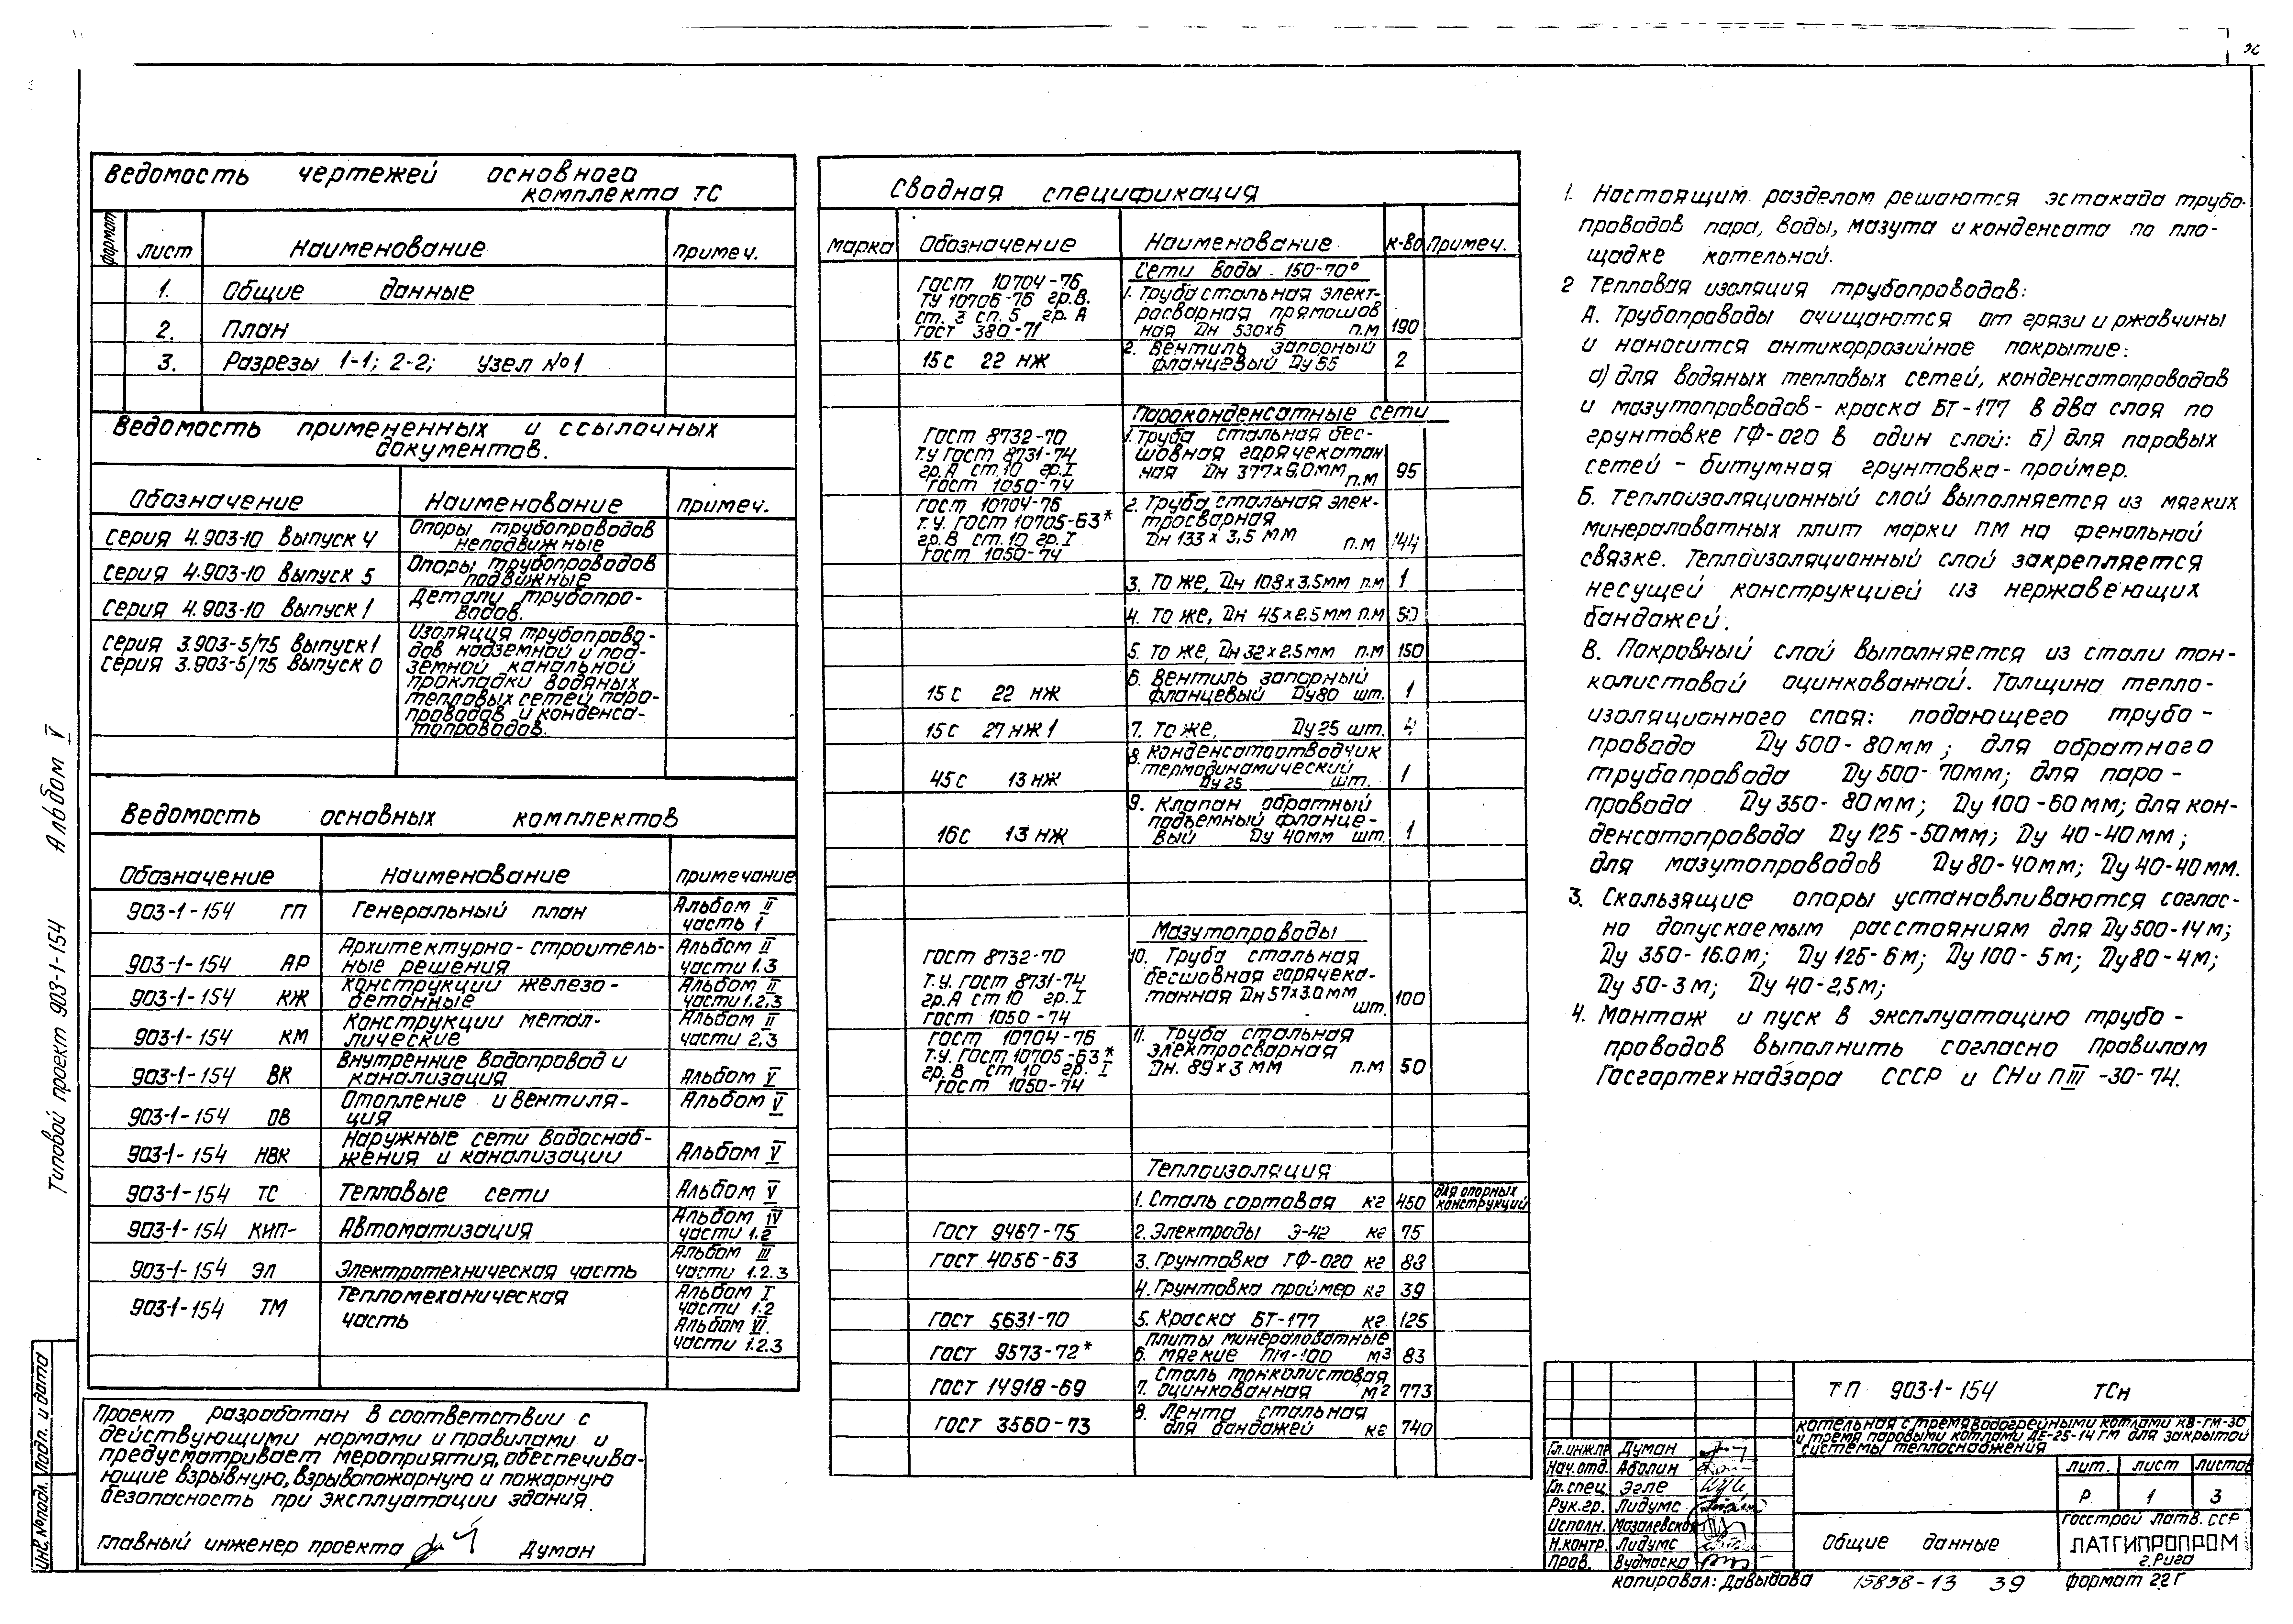 Ведомость чертежей основного
комплекта ТС
формат
лист
Наименование
примеч.
1. Общие данные
2. План
3. Разрезы 1-1; 2-2; Узел №1
Ведомость примененных и ссылочных
документов.
Обозначение
Наименование
примеч.
серия 4.903-10 Выпуск 4
Опоры трубопроводов
неподвижные
серия 4.903-10 Выпуск 5
Опоры трубопроводов
подвижные
серия 4.903-10 Выпуск 1
Детали трубопро-
водов.
серия 3.903-5/75 Выпуск 1
серия 3.903-5/75 Выпуск 0
Изоляция трубопрово-
дов надземной и под-
земной канальной
прокладки водяных
тепловых сетей паро-
проводов и конденса-
топроводов.
Ведомость основных комплектов
Обозначение
Наименование
примечание
903-1-154 ГП
Генеральный план
Альбом II
часть 1
903-1-154 АР
Архитектурно-строитель-
ные решения
Альбом II
части 1.3
903-1-154 КЖ
Конструкции железо-
бетонные
Альбом II
части 1.2.3
903-1-154 КМ
Конструкции метал-
лические
Альбом II
части 2,3
903-1-154 ВК
Внутренние водопровод и
канализация
Альбом V
903-1-154 ОВ
Отопление и вентиля-
ция
Альбом V
903-1-154 НВК
Наружные сети водоснаб-
жения и канализации
Альбом V
903-1-154 ТС
Тепловые сети
Альбом V
903-1-154 КИП-
Автоматизация
Альбом IV
части 1.2
903-1-154 ЭЛ
Электротехническая часть
Альбом III
части 1.2.3
903-1-154 ТМ
Тепломеханическая
часть
Альбом I
части 1.2
Альбом VI
части 1.2.3
Проект разработан в соответствии с
действующими нормами и правилами и
предусматривает мероприятия, обеспечива-
ющие взрывную, взрывопожарную и пожарную
безопасность при эксплуатации здания.
главный инженер проекта Думан
Сводная спецификация
марка
Обозначение
Наименование
к-во
Примеч.
Сети воды 150-70°
ГОСТ 10704-76
ТУ 10706-76 гр.В.
ст. 3 сп. 5 гр. А
ГОСТ 380-71
1. Труба стальная элект-
расварная прямошов
ная Дн 530х6 п.м
190
15с 22 нж
2. Вентиль запорный
фланцевый Ду 55
2
Пароконденсатные сети
ГОСТ 8732-70
т.у ГОСТ 8731-74
гр.А ст.10 гр.I
ГОСТ 1050-74
1. Труба стальная бес-
шовная горячекатан
ная Дн 377х9,0мм
п.м
95
ГОСТ 10704-76
т.у. ГОСТ 10705-63*
гр.В ст.10 гр.I
ГОСТ 1050-74
2. Труба стальная элек-
тросварная
Дн 133 х 3,5 мм п.м
144
3. То же, Дн 108х3.5мм п.м 1
4. То же, Дн 45х2,5мм п.м 50
5. То же, Дн 32х2.5мм п.м 150
15с 22 нж
6. Вентиль запорный
фланцевый Ду80 шт.
1
15с 27 нж 1
7. То же, Ду 25 шт.
4
45с 13 нж
8. Конденсатоотводчик
термодинамический
Ду 25 шт.
1
16с 13 нж
9. Клапан обратный
подъемный фланце-
вый Ду 40мм шт.
1
Мазутопроводы
ГОСТ 8732-70
т.у. ГОСТ 8731-74
гр.А ст 10 гр.I
ГОСТ 1050-74
10. Труба стальная
бесшовная горячека-
танная Дн 57х3.0мм
шт.
100
ГОСТ 10704-76
т.у. ГОСТ 10705-63*
гр.В ст 10 гр. I
ГОСТ 1050-74
11. Труба стальная
электросварная
Дн. 89х3 мм п.м
50
Теплоизоляция
1. Сталь сортовая кг 450
для опорных
конструкций
ГОСТ 9467-75 2. Электроды Э-42 кг 75
ГОСТ 4056-63 3. Грунтовка ГФ-020 кг 83
4. Грунтовка праймер кг 39
ГОСТ 5631-70 5. Краска БТ-177 кг 125
ГОСТ 9573-72*
плиты минераловатные
6. мягкие ПМ-100 м3 83
ГОСТ 14918-69
сталь тонколистовая
7. оцинкованная м2 773
ГОСТ 3560-73
8. Лента стальная
для бандажей кг 740
1. Настоящим разделом решаются эстакада трубо-
проводов пара, воды, мазута и конденсата по пло-
щадке котельной.
2 Тепловая изоляция трубопроводов:
А. Трубопроводы очищаются от грязи и ржавчины
и наносится антикоррозийное покрытие:
а) для водяных тепловых сетей, конденсатопроводов
и мазутопроводов - краска БТ-177 в два слоя по
грунтовке ГФ-020 в один слой: б) для паровых
сетей - битумная грунтовка-праймер.
Б. Теплоизоляционный слой выполняется из мягких
минераловатных плит марки ПМ на фенольной
связке. Теплоизоляционный слой закрепляется
несущей конструкцией из нержавеющих
бандажей.
В. Покровный слой выполняется из стали тон-
колистовой оцинкованной. Толщина тепло-
изоляционного слоя: подающего трубо-
провода Ду 500-80мм; для обратного
трубопровода Ду 500-70мм; для паро-
провода Ду 350-80мм; Ду 100-60мм; для кон-
денсатопровода Ду 125-50мм; Ду 40-40мм;
для мазутопроводов Ду 80-40мм; Ду 40-40мм.
3. Скользящие опоры устанавливаются соглас-
но допускаемым расстояниям для Ду 500-14м;
Ду 350-16.0м; Ду 125-6м; Ду 100-5м; Ду 80-4м;
Ду 50-3м; Ду 40-2,5м;
4. Монтаж и пуск в эксплуатацию трубо-
проводов выполнить согласно правилам
Госгортехнадзора СССР и СНиП III-30-74.
ТП 903-1-154 ТСн
котельная с тремя водогрейными котлами КВ-ГМ-30
и тремя паровыми котлами ДЕ-25-14 ГМ для закрытой
системы теплоснабжения
Гл.инж.пр Думан
Нач.отд. Аболин
Гл.спец. Эгле
Рук.гр. Лидумс
Исполн. Мазалевская
Н.контр. Лидумс
Пров. Вудмаска
лит. лист листов
Р 1 3
Общие данные
госстрой латв. ССР
ЛАТГИПРОПРОМ
г.Рига
копировал: Давыдова 15838-13 39 формат 22Г
Типовой проект 903-1-154 Альбом V
Инв.№подл. Подп. и дата